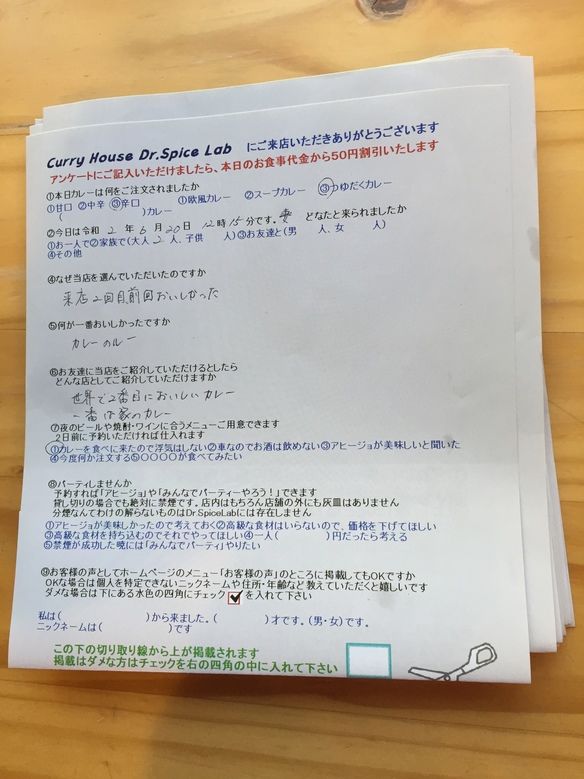 Curry House Dr.Spice Lab にご来店いただきありがとうございます
アンケートにご記入いただけましたら、本日のお食事代金から50円割引いたします
①本日カレーは何をご注文されましたか
①甘口 ②中辛 ③辛口 ①欧風カレー ②スープカレー ③つゆだくカレー
( )カレー
②今日は令和 2 年 6 月 20 日 12 時 15 分です。妻 どなたと来られましたか
①お一人で②家族で(大人 2 人、子供 人)③お友達と(男 人、女 人)
④その他
④なぜ当店を選んでいただいたのですか
来店2回目、前回おいしかった
⑤何が一番おいしかったですか
カレーのルー
⑥お友達に当店をご紹介していただけるとしたら
どんな店としてご紹介していただけますか
世界で2番目においしいカレー
一番は家のカレー
⑦夜のビールや焼酎・ワインに合うメニューご用意できます
2日前に予約いただければ仕入れます
①カレーを食べに来たので浮気はしない②車なのでお酒は飲めない③アヒージョが美味しいと聞いた
④今度何か注文する⑤〇〇〇〇が食べてみたい
⑧パーティしませんか
予約すれば「アヒージョ」や「みんなでパーティーやろう!」できます
貸し切りの場合でも絶対に禁煙です。店内はもちろん店舗の外にも灰皿はありません
分煙なんてわけの解らないものはDr.SpiceLabには存在しません
①アヒージョが美味しかったので考えておく②高級な食材はいらないので、価格を下げてほしい
③高級な食材を持ち込むのでそれでやってほしい④一人( )円だったら考える
⑤禁煙が成功した暁には「みんなでパーティ」やりたい
⑨お客様の声としてホームページのメニュー「お客様の声」のところに掲載してもOKですか
OKな場合は個人を特定できないニックネームや住所・年齢など教えていただくと嬉しいです
ダメな場合は下にある水色の四角にチェック を入れて下さい
私は( )から来ました。( )才です。(男・女)です。
ニックネームは( )です
この下の切り取り線から上が掲載されます
掲載はダメな方はチェックを右の四角の中に入れて下さい